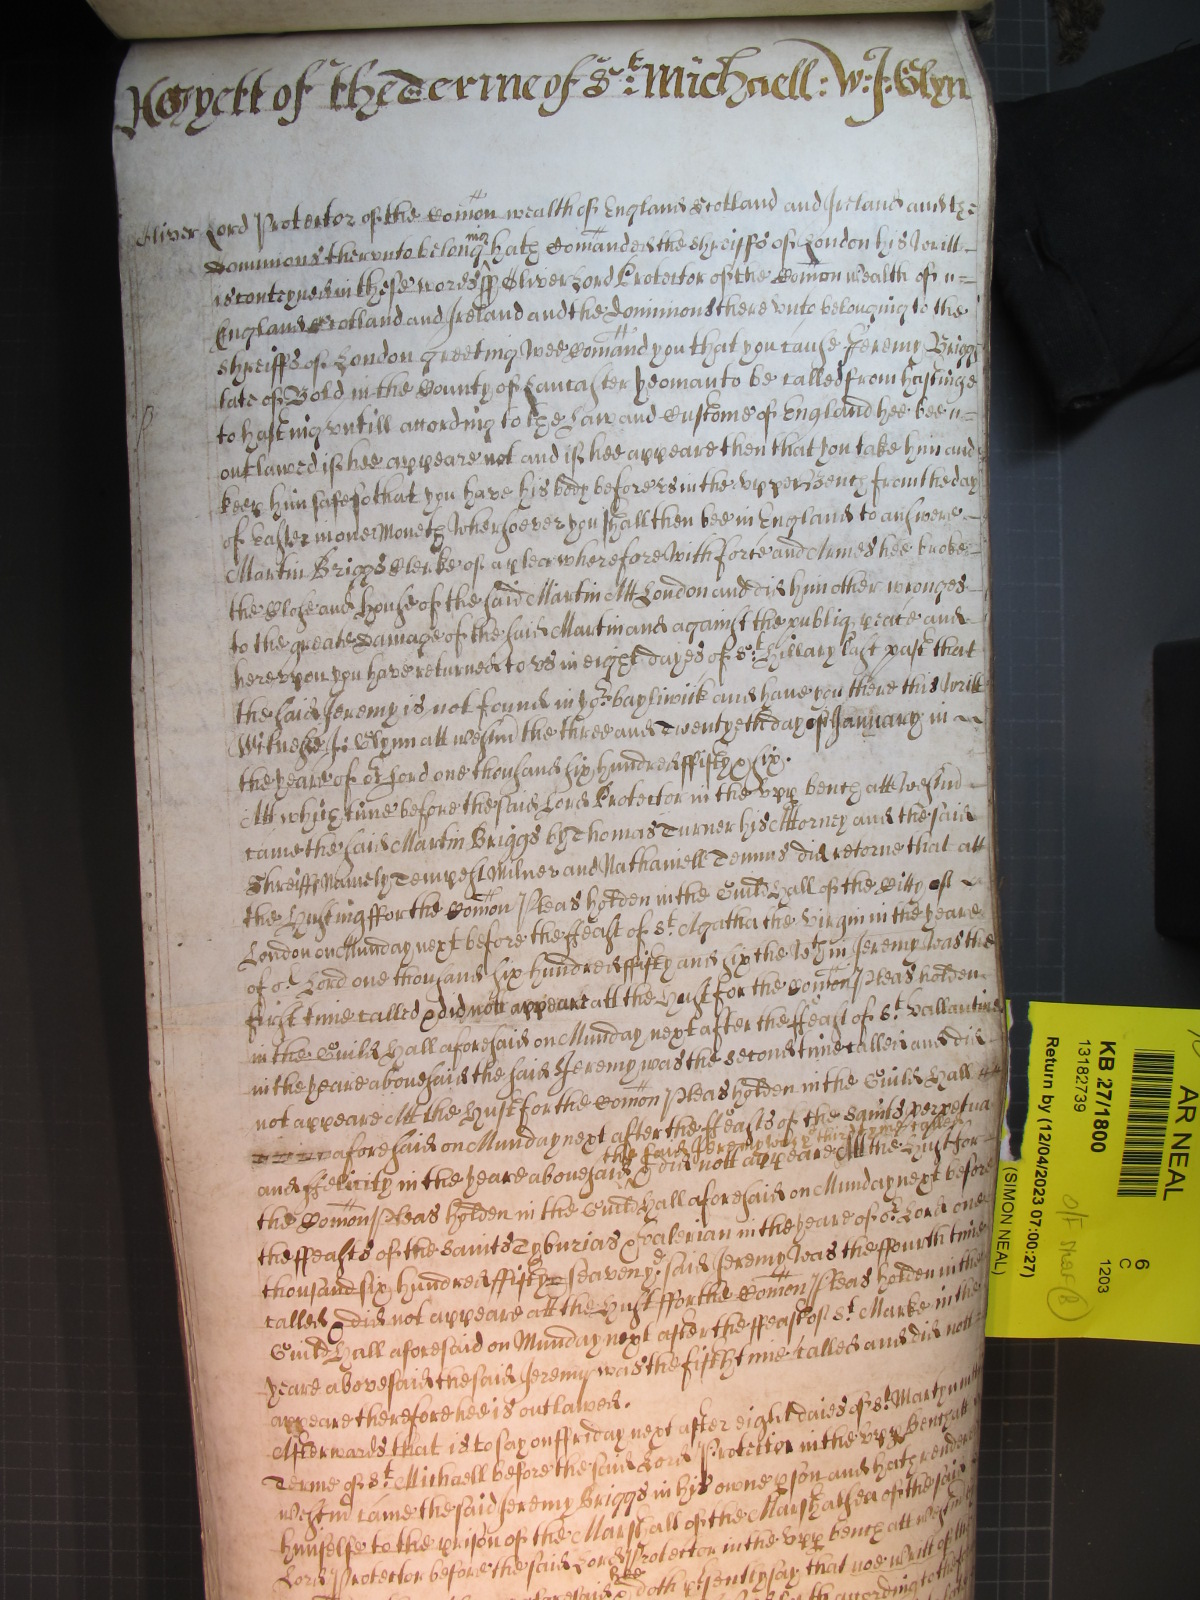 yett of the Terme of St. Michaell: W. J. Glyn
Oliver Lord Protector of the Comon wealth of England Scotland and Ireland and the
Dominions thervnto belonging hath Comanded the shreiffs of London his Writt
is conteyned in these words Oliver Lord Protector of the Comon wealth of
England Scotland and Ireland and the Dominions there vnto belonging to the
shreiffs of London greeting Wee Comand you that you cause Jeremy Briggs
late of Bold in the County of Lancaster yeoman to be called from hustinge
to husting vntill according to the Law and Custome of England hee bee
outlawed if hee appeare not and if hee appeare then that you take him and
keep him safe so that you have his body before vs in the vpper Bench from the day
of Easter in one Moneth Whersoever you shall then bee in England to answere
Martin Briggs Clerke of a plea wherefore With force and Armes hee broke
the Close and house of the said Martin Att London and did him other wronges
to the greate Damage of the said Martin and against the publiq peace and
herevpon you have returned to vs in eight dayes of St. Hillary last past that
the said Jeremy is not found in yor bayliwick and have you there this Writt
Witnesse J: Glynn att Westm the three and Twentyeth day of January in
the yeare of or Lord one thousand six hundred ffifty & six.
Att which time before the said Lord Protector in the vpp bench att Westm
came the said Martin Briggs by Thomas Turner his Attorney and the said
Shreiffs Namely Tempest Milner and Nathaniell Temms did retorne that att
the Husting ffor the Comon Pleas holden in the Guild Hall of the Citty of
London on Munday next before the ffeast of St. Agatha the Virgin in the yeare
of or Lord one thousand six hundred ffifty and six the wthin Jeremy Was the
first time called & did not appeare att the Hust for the Comon Pleas holden
in the Guild Hall aforesaid on Munday next after the ffeast of St. Vallantine
in the yeare abovesaid the said Jeremy was the second time called and did
not appeare Att the Hust for the Comon Pleas holden in the Guild Hall
aforesaid on Munday next after the ffeasts of the saints perpetua
the said Jeremy was the third tyme called
and ffelicity in the yeare abovesaid & did nott appeare Att the Hust for
the Comon Pleas holden in the Guild Hall aforesaid on Munday next before
the ffeasts of the saints Tyburias & Valerian in the yeare of or Lord one
thousand six hundred ffifty seaven ye said Jeremy Was the ffourth time
called & did not appeare att the Hust ffor the Comon Pleas holden in the
Guild Hall aforesaid on Munday next after the ffeast of St. Marke in the
yeare abovesaid the said Jeremy was the fifth time called and did nott
appeare therefore hee is outlawed.
Afterwards that is to say on ffriday next after eight daies of St. Martyn
Terme of St. Michaell before the said Lord Protector in the vpp Bench att
Westm came the said Jeremy Briggs in his owne pson and hath rendered
himselfe to the prison of the Marshall of the Marshalsea of the said
Lord Protector before the said Lord Protector in the vpp bench att Westm
aforesaid hee doth psently say that noe writt of
according to the
AR NEAL
KB 27/1800
13182739
Return by (12/04/2023 07:00:27)
(SIMON NEAL)
6
C
1203